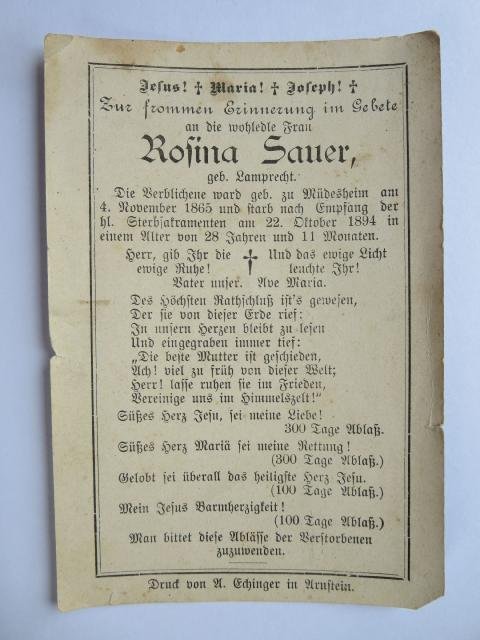 Jesus! † Maria! † Joseph! †
Zur frommen Erinnerung im Gebete
an die wohledle Frau
Rosina Sauer,
geb. Lamprecht.
Die Verblichene ward geb. zu Müdesheim am
4. November 1865 und starb nach Empfang der
hl. Sterbsakramenten am 22. Oktober 1894 in
einem Alter von 28 Jahren und 11 Monaten.
Herr, gib Ihr die † Und das ewige Licht
ewige Ruhe! leuchte Ihr!
Vater unser. Ave Maria.
Des Höchsten Rathschluß ist's gewesen,
Der sie von dieser Erde rief:
In unsern Herzen bleibt zu lesen
Und eingegraben immer tief:
„Die beste Mutter ist geschieden,
Ach! viel zu früh von dieser Welt;
Herr! lasse ruhen sie im Frieden,
Vereinige uns im Himmelszelt!"
Süßes Herz Jesu, sei meine Liebe!
300 Tage Ablaß.
Süßes Herz Mariä sei meine Rettung!
(300 Tage Ablaß.)
Gelobt sei überall das heiligste Herz Jesu.
(100 Tage Ablaß.)
Mein Jesus Barmherzigkeit!
(100 Tage Ablaß.)
Man bittet diese Ablässe der Verstorbenen
zuzuwenden.
Druck von A. Echinger in Arnstein.